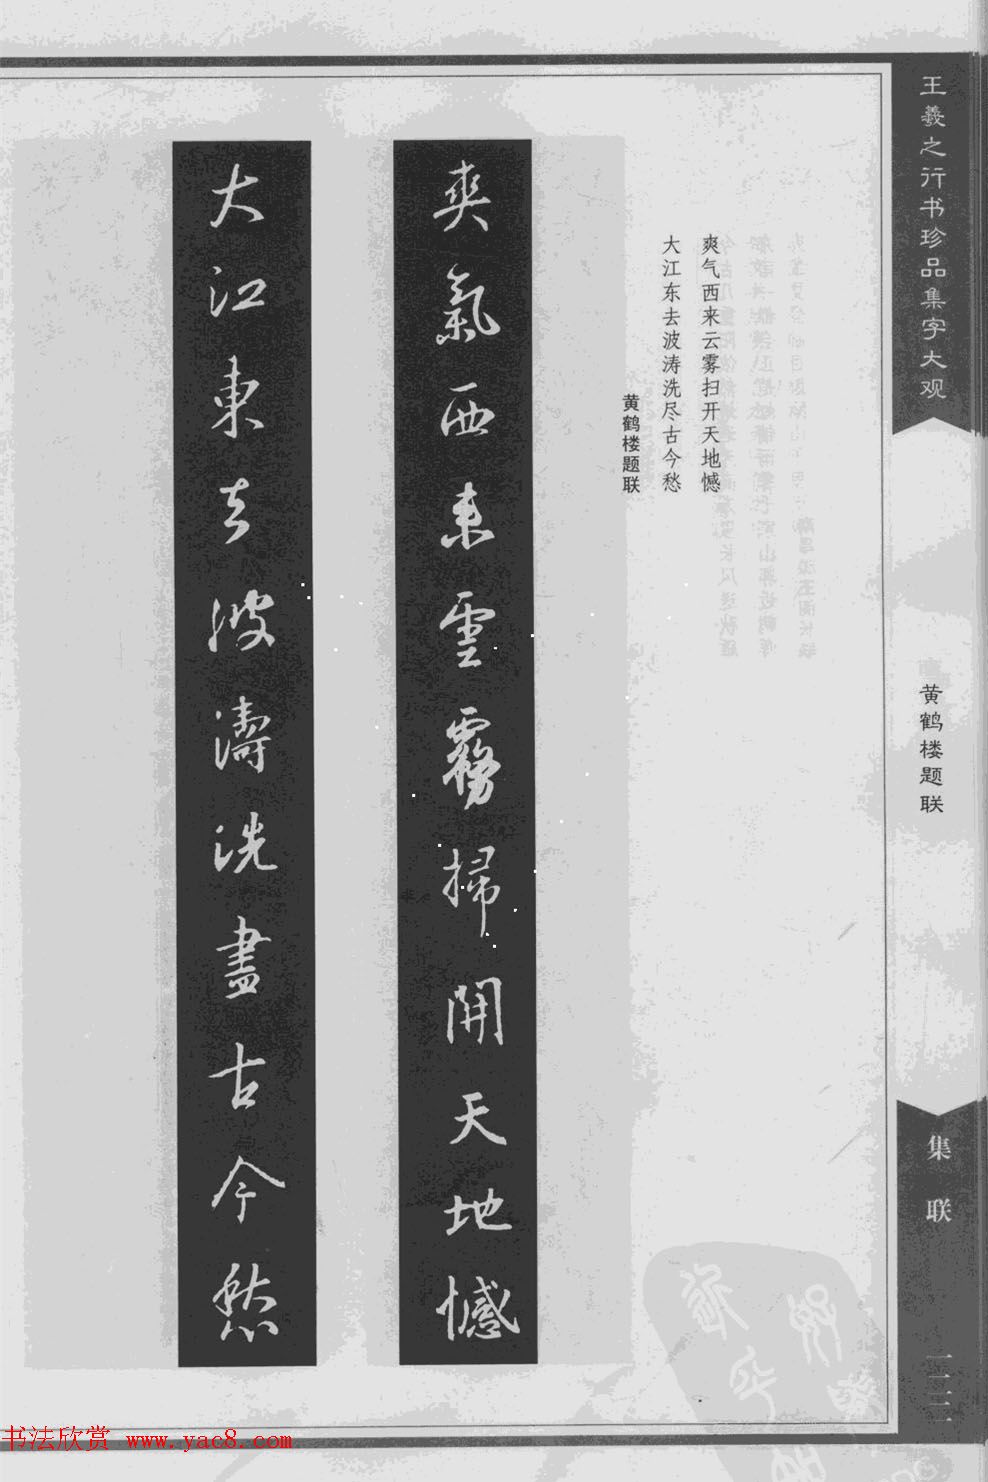 王羲之行书珍品集字大观
黄鹤楼题联
集联
一二三
爽气西来云雾扫开天地憾
大江东去波涛洗尽古今愁
黄鹤楼题联
爽氣西来雲霧掃開天地憾
大江東去波濤洗盡古今愁
书法欣赏 www.yac8.com